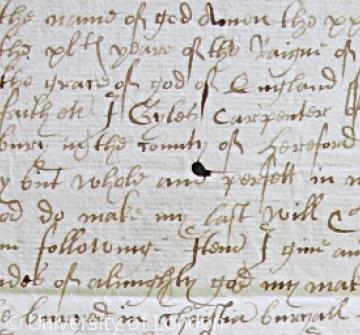 the name of god Amen the
the yeare of the Raigne of
the grace of god of England
faith etc I Gyles Carpenter
bury in the county of Hereford
but whole and perfett in
god do make my last Will
following Item I give an
of almighty god my mak
buryed in buryall
© University of London